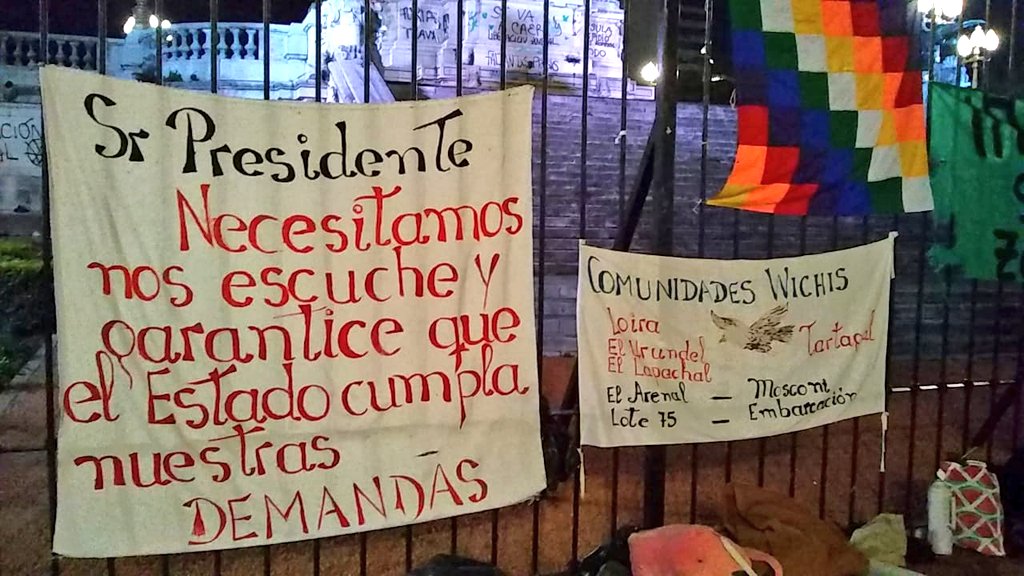 Sr Presidente
Necesitamos
nos escuche y
garantice que
el Estado cumpla
nuestras
DEMANDAS
COMUNIDADES WICHIS
Loira
El Urundel
El Lavachal
Tartagal
El Arenal — Mosconi
Lote 75 — Embarcación